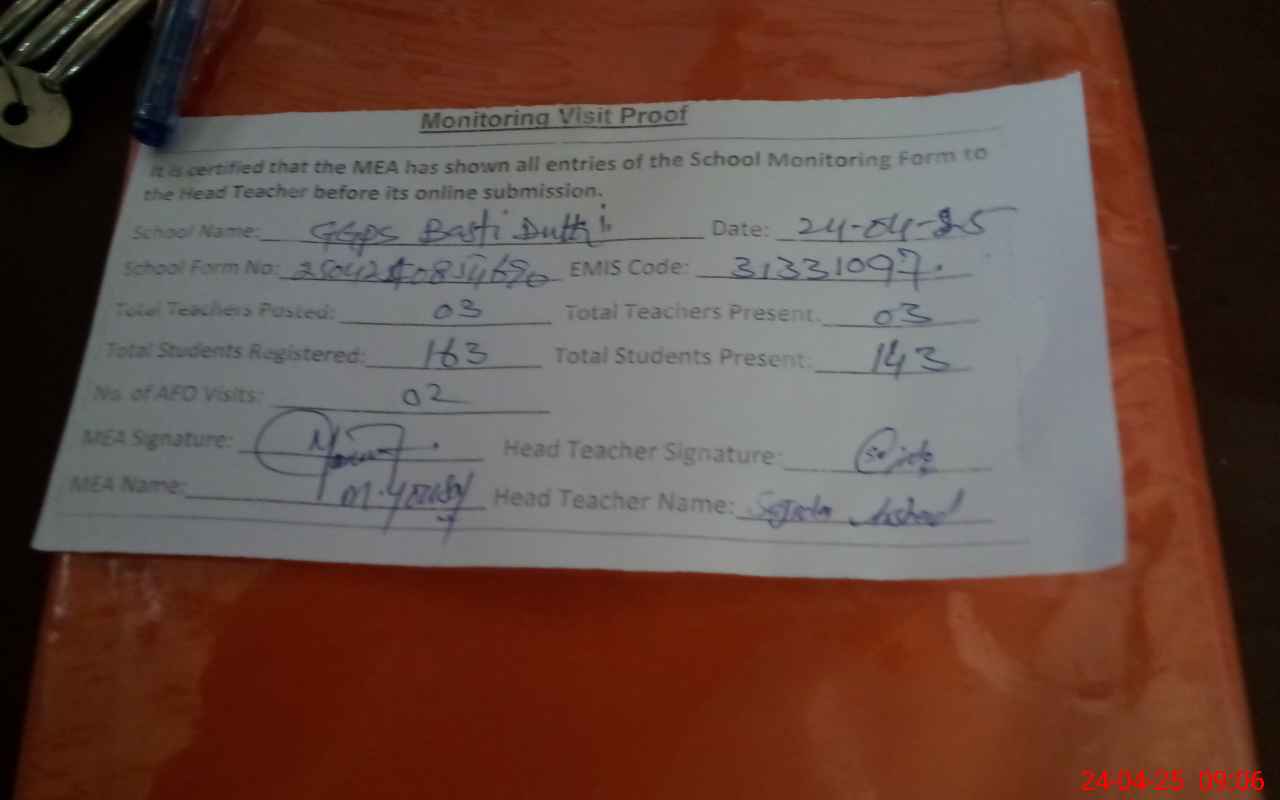 Monitoring Visit Proof
It is certified that the MEA has shown all entries of the School Monitoring Form to
the Head Teacher before its online submission.
School Name: GGPS Basti Dutthi Date: 24-04-25
School Form No: EMIS Code: 31331097.
Total Teachers Posted: 03 Total Teachers Present: 03
Total Students Registered: 163 Total Students Present: 143
No. of AEO Visits: 02
MEA Signature: Head Teacher Signature:
MEA Name: M. Yousaf Head Teacher Name: Arshad
24-04-25 09:06